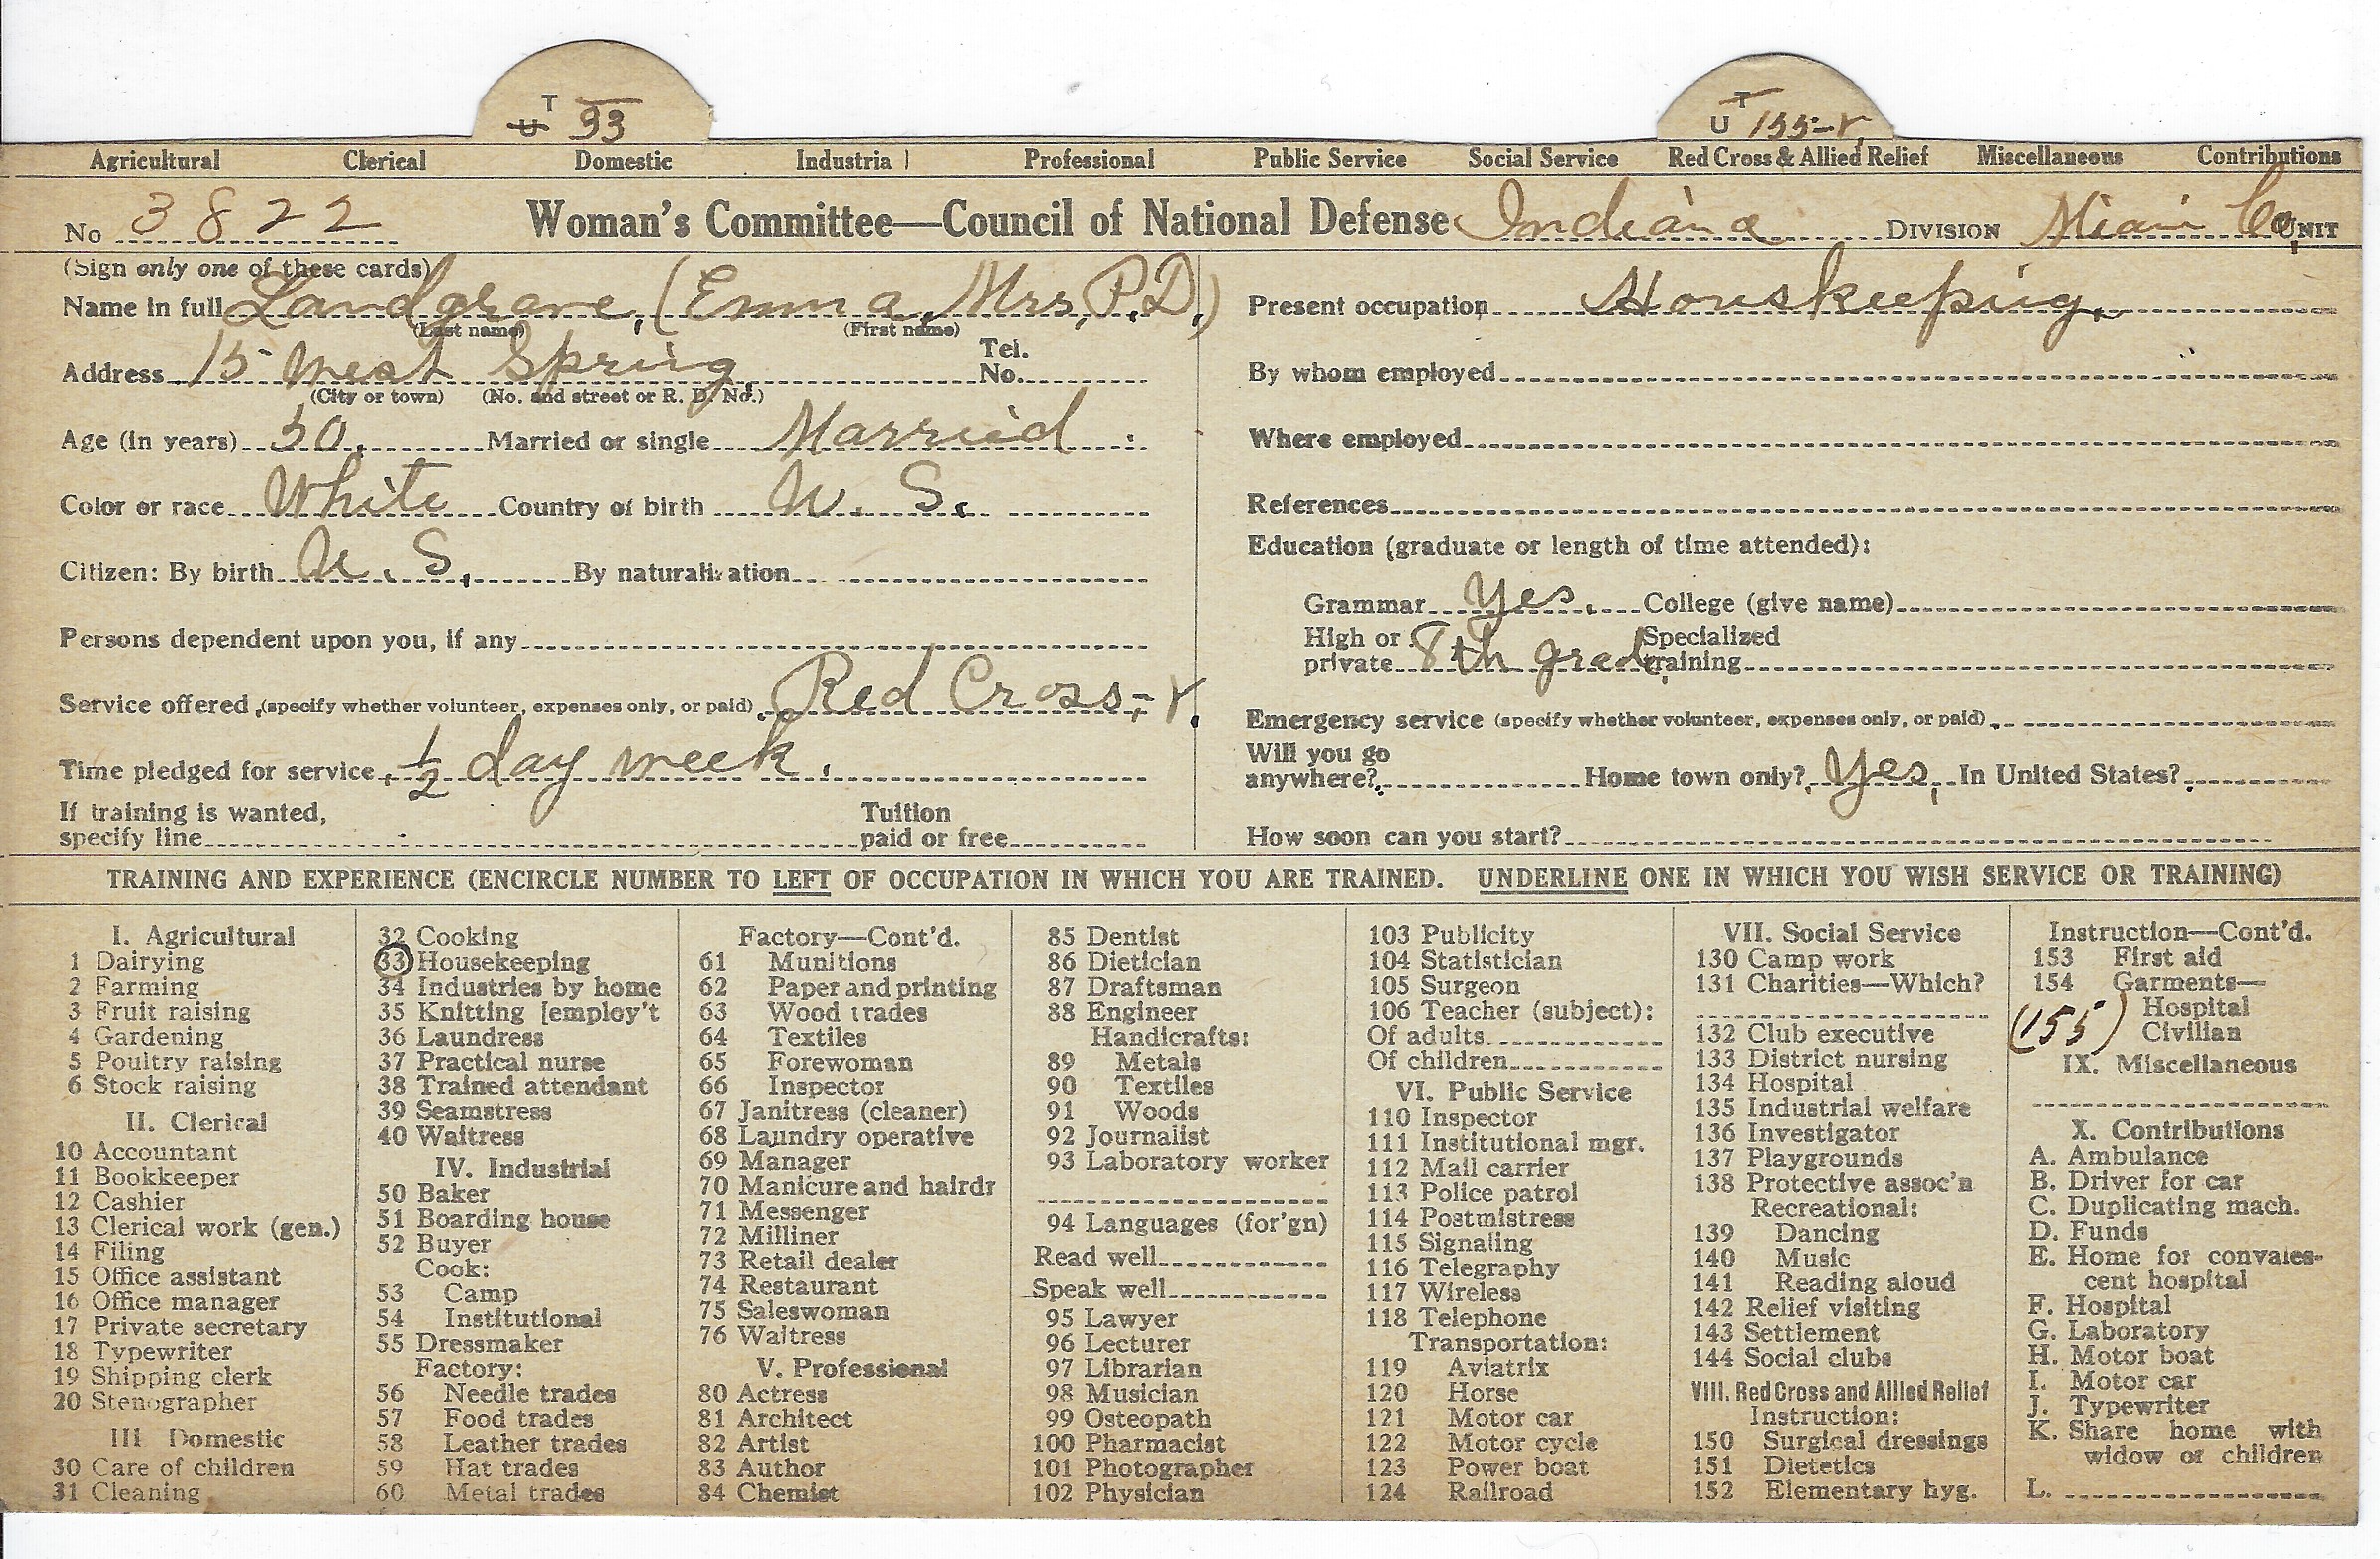 T
U 33
T
U 155-v.
Agricultural Clerical Domestic Industrial Professional Public Service Social Service Red Cross & Allied Relief Miscellaneous Contributions
No 3822 Woman's Committee—Council of National Defense Indiana DIVISION Miami Co. UNIT
(Sign only one of these cards)
Name in full Landgrave, (Emma, Mrs. P.D.)
(Last name) (First name)
Address 15 West Spring. Tel. No.
(City or town) (No. and street or R. D. No.)
Age (in years) 50. Married or single Married
Color or race White Country of birth U. S.
Citizen: By birth U. S. By naturalization
Persons dependent upon you, if any
Service offered (specify whether volunteer, expenses only, or paid) Red Cross,-v.
Time pledged for service 1/2 day week.
If training is wanted, specify line Tuition paid or free
Present occupation Houskeeping.
By whom employed
Where employed
References
Education (graduate or length of time attended):
Grammar Yes. College (give name)
High or private 8th grade, Specialized training
Emergency service (specify whether volunteer, expenses only, or paid)
Will you go anywhere? Home town only? Yes, In United States?
How soon can you start?
TRAINING AND EXPERIENCE (ENCIRCLE NUMBER TO LEFT OF OCCUPATION IN WHICH YOU ARE TRAINED. UNDERLINE ONE IN WHICH YOU WISH SERVICE OR TRAINING)
I. Agricultural
1 Dairying
2 Farming
3 Fruit raising
4 Gardening
5 Poultry raising
6 Stock raising
II. Clerical
10 Accountant
11 Bookkeeper
12 Cashier
13 Clerical work (gen.)
14 Filing
15 Office assistant
16 Office manager
17 Private secretary
18 Typewriter
19 Shipping clerk
20 Stenographer
III Domestic
30 Care of children
31 Cleaning
32 Cooking
33 Housekeeping
34 Industries by home
35 Knitting [employ't
36 Laundress
37 Practical nurse
38 Trained attendant
39 Seamstress
40 Waitress
IV. Industrial
50 Baker
51 Boarding house
52 Buyer
Cook:
53 Camp
54 Institutional
55 Dressmaker
Factory:
56 Needle trades
57 Food trades
58 Leather trades
59 Hat trades
60 Metal trades
Factory—Cont'd.
61 Munitions
62 Paper and printing
63 Wood trades
64 Textiles
65 Forewoman
66 Inspector
67 Janitress (cleaner)
68 Laundry operative
69 Manager
70 Manicure and hairdr
71 Messenger
72 Milliner
73 Retail dealer
74 Restaurant
75 Saleswoman
76 Waitress
V. Professional
80 Actress
81 Architect
82 Artist
83 Author
84 Chemist
85 Dentist
86 Dietician
87 Draftsman
88 Engineer
Handicrafts:
89 Metals
90 Textiles
91 Woods
92 Journalist
93 Laboratory worker
94 Languages (for'gn)
Read well
Speak well
95 Lawyer
96 Lecturer
97 Librarian
98 Musician
99 Osteopath
100 Pharmacist
101 Photographer
102 Physician
103 Publicity
104 Statistician
105 Surgeon
106 Teacher (subject):
Of adults
Of children
VI. Public Service
110 Inspector
111 Institutional mgr.
112 Mail carrier
113 Police patrol
114 Postmistress
115 Signaling
116 Telegraphy
117 Wireless
118 Telephone
Transportation:
119 Aviatrix
120 Horse
121 Motor car
122 Motor cycle
123 Power boat
124 Railroad
VII. Social Service
130 Camp work
131 Charities—Which?
132 Club executive
133 District nursing
134 Hospital
135 Industrial welfare
136 Investigator
137 Playgrounds
138 Protective assoc'n
Recreational:
139 Dancing
140 Music
141 Reading aloud
142 Relief visiting
143 Settlement
144 Social clubs
VIII. Red Cross and Allied Relief
Instruction:
150 Surgical dressings
151 Dietetics
152 Elementary hyg.
Instruction—Cont'd.
153 First aid
154 Garments—
Hospital
(155) Civilian
IX. Miscellaneous
X. Contributions
A. Ambulance
B. Driver for car
C. Duplicating mach.
D. Funds
E. Home for convales-
cent hospital
F. Hospital
G. Laboratory
H. Motor boat
I. Motor car
J. Typewriter
K. Share home with
widow or children
L.